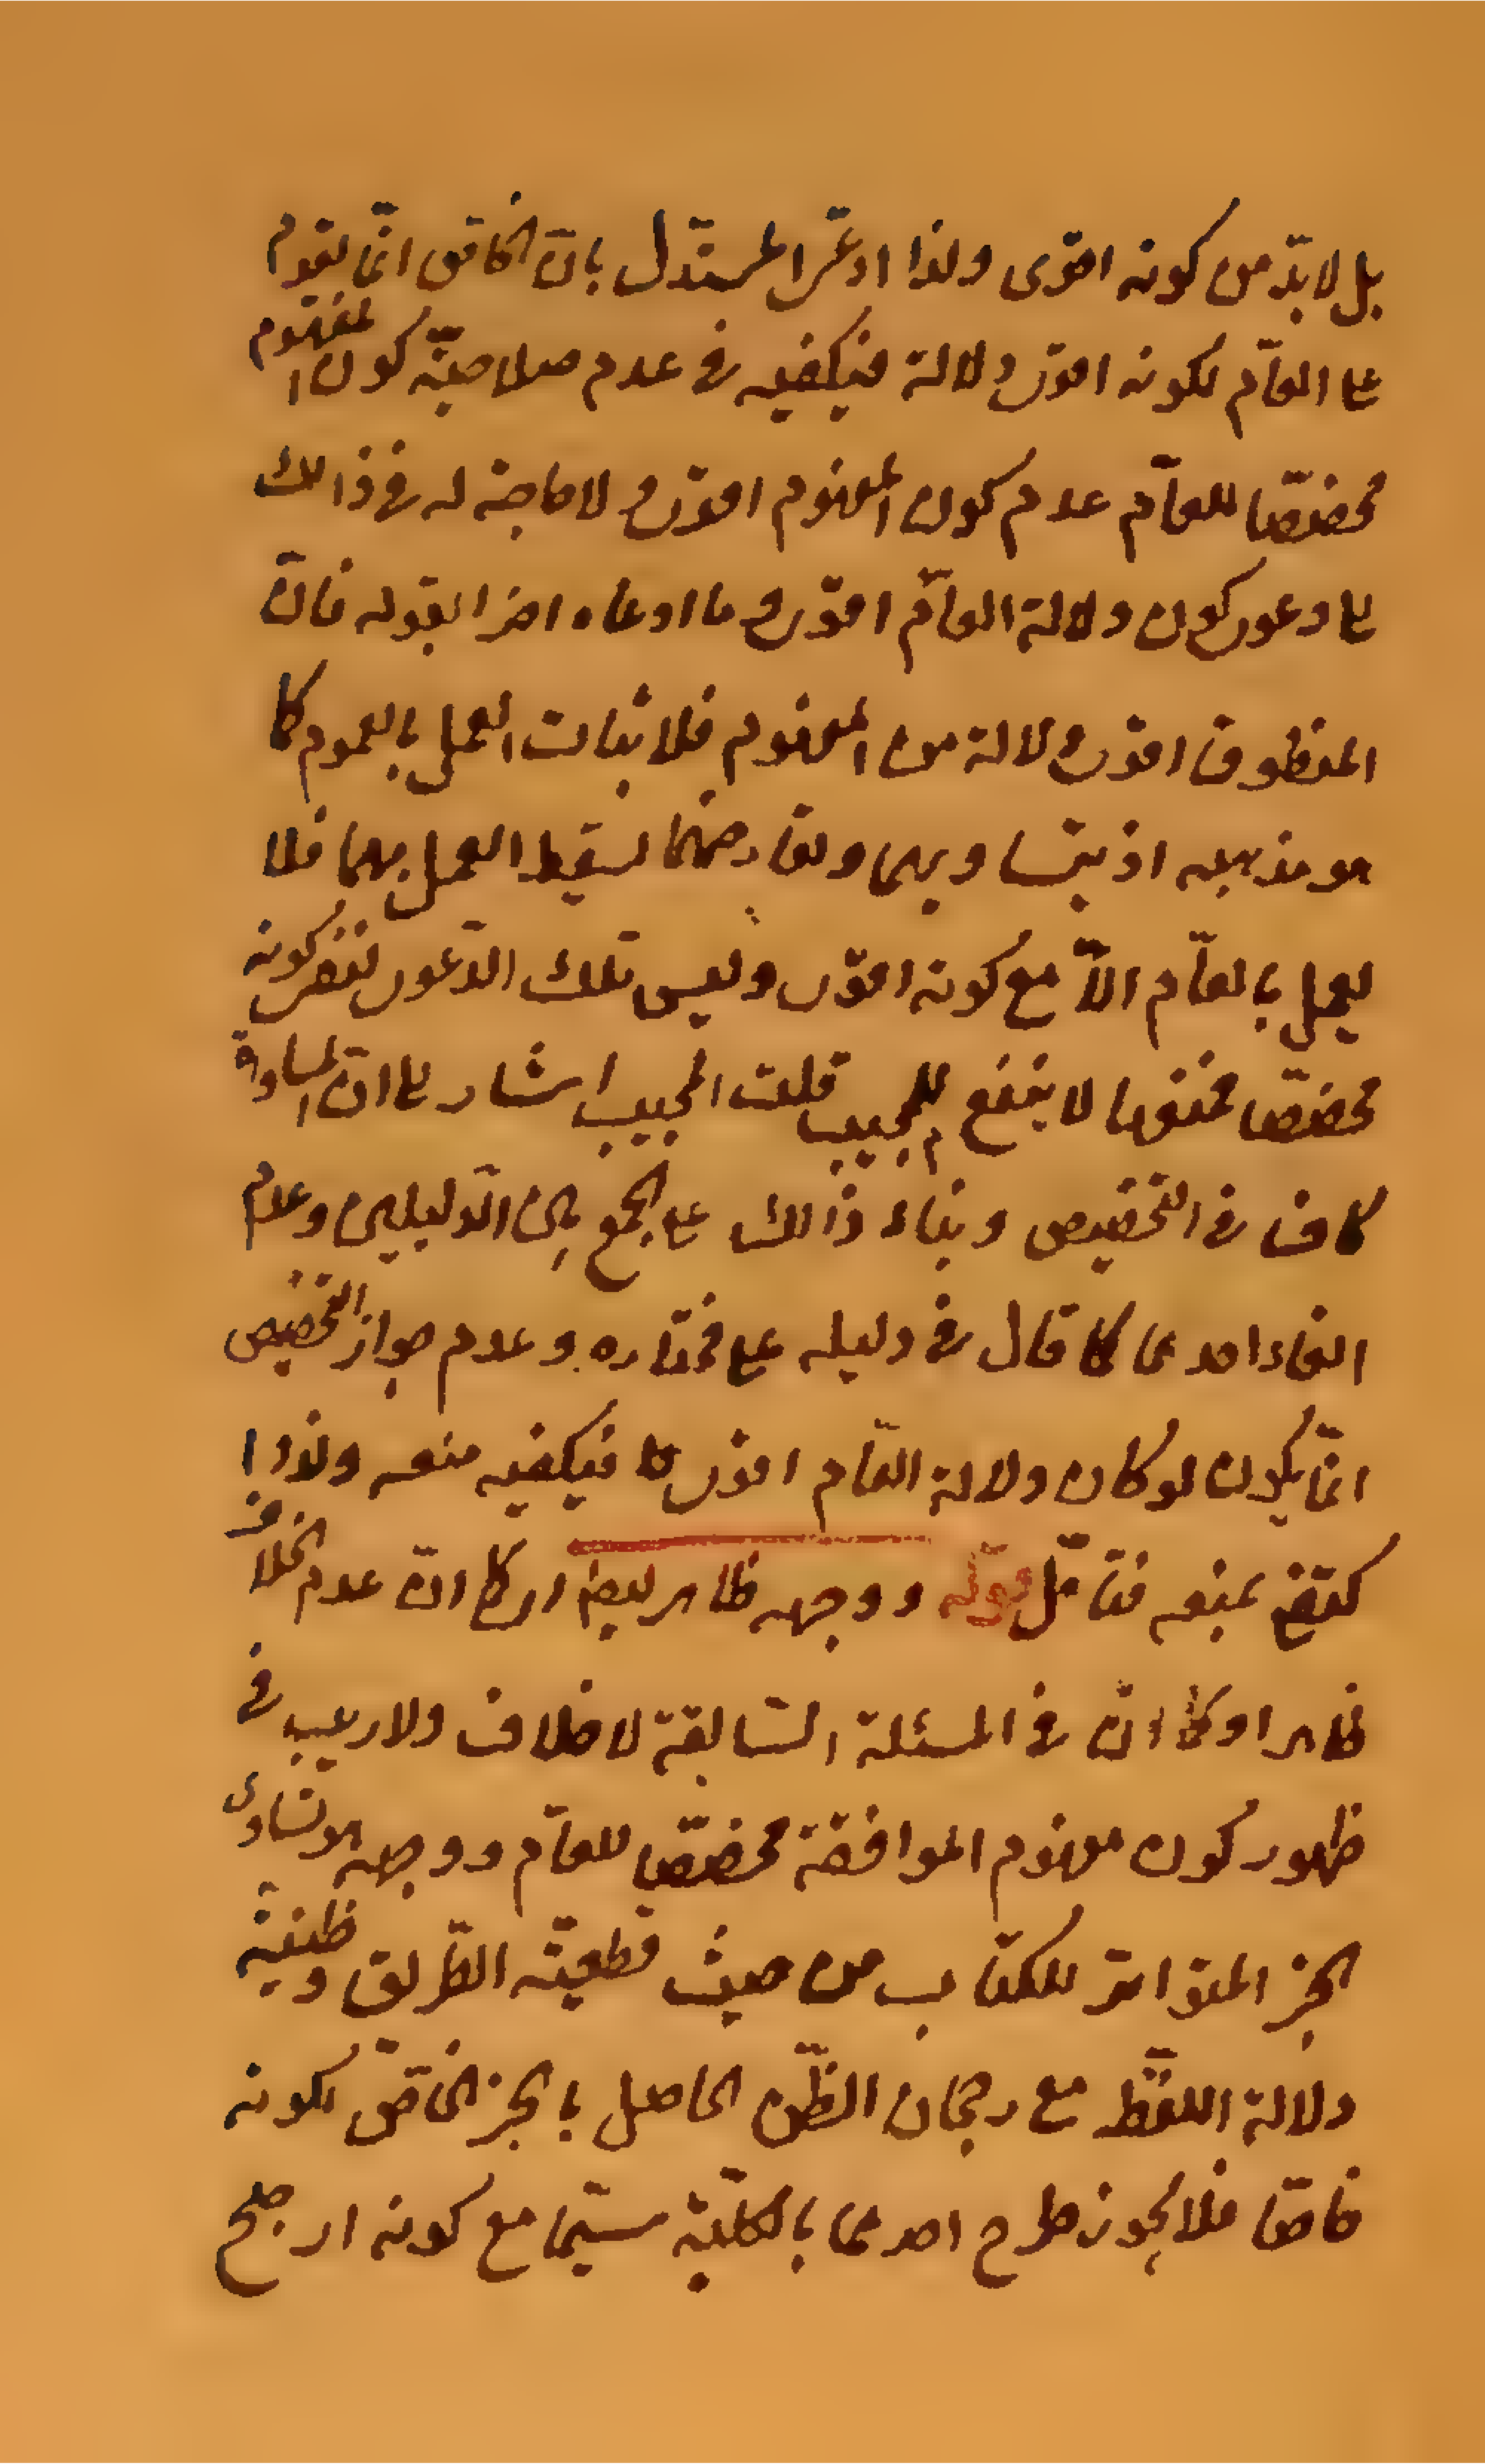 بل لا بدّ من كونه اقوى ولذا ادعى المستدل بانّ الخاصّ انّما يقدم
على العامّ لكونه اقوى دلالة فيكفيه فى عدم صلاحيّة كون المفهوم
مخصّصا للعامّ عدم كون المفهوم اقوى ولا حاجة له فى ذالك
على دعوى كون دلالة العامّ اقوى وما ادعاه اخرا بقوله فانّ
المنطوق اقوى دلالة من المفهوم فلاثبات العمل بالعموم كما
هو مذهبه اذ بتساويهما وتعارضهما يسقط العمل بهما فلا
يعمل بالعامّ الاّ مع كونه اقوى وليس تلك الدّعوى لنفى كونه
مخصّصا فمنعها لا ينفع للمجيب قلت المجيب اشار على انّ المساواة
كاف فى التخصيص وبناء ذالك على الجمع بين الدّليلين وعدم
الغاء احدهما كما قال فى دليله على مختاره وعدم جواز التخصيص
انّما يكون لو كان دلالة العامّ اقوى فيكفيه منعه ولذا ا
كتفى بمنعه فتامّل قوله ووجهه ظاهر ايضا اى كما انّ عدم الخلاف
ظاهر او كما انّ فى المسئلة السّابقة لا خلاف ولا ريب فى
ظهور كون مفهوم الموافقة مخصّصا للعامّ ووجهه هو تساوى
الخبر المتواتر للكتاب من حيث قطعيّة الطّريق وظنية
دلالة اللفظ مع رجحان الظّن الحاصل بالخبر الخاصّ لكونه
خاصّا فلا يجوز طرح احدهما بالكلّية سيّما مع كونه ارجح